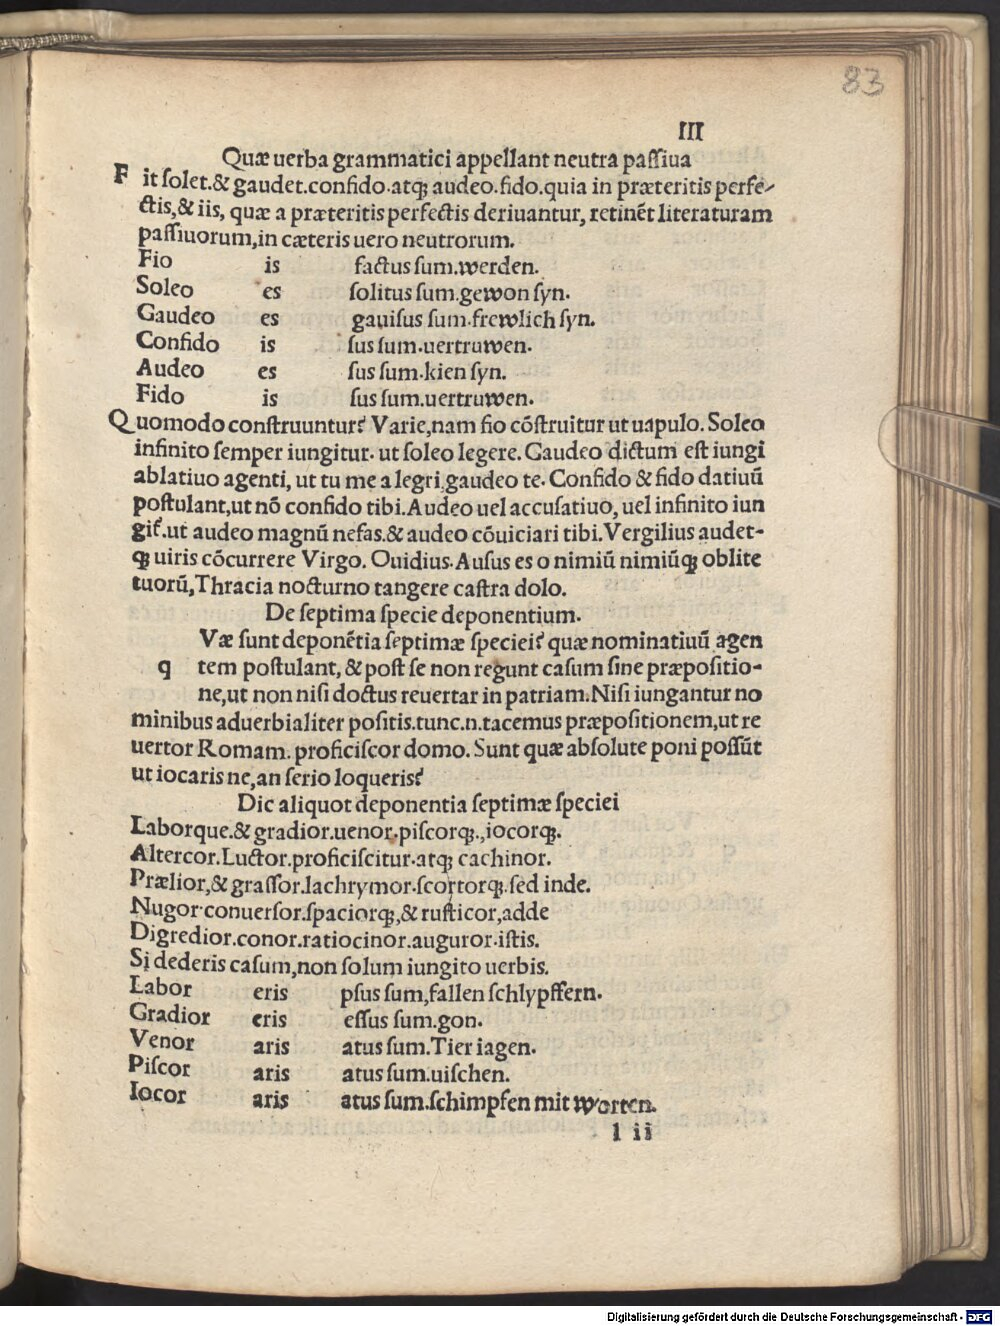 83
III
Quæ uerba grammatici appellant neutra paſſiua
F it ſolet.& gaudet.confido.atqꝫ audeo.fido.quia in præteritis perfe-
ctis,& iis, quæ a præteritis perfectis deriuantur, retinẽt literaturam
paſſiuorum,in cæteris uero neutrorum.
Fio is factus ſum.werden.
Soleo es ſolitus ſum.gewon ſyn.
Gaudeo es gauiſus ſum.frewlich ſyn.
Confido is ſus ſum.uertruwen.
Audeo es ſus ſum.kien ſyn.
Fido is ſus ſum.uertruwen.
Quomodo conſtruuntur? Varie,nam fio cõſtruitur ut uapulo. Soleo
infinito ſemper iungitur. ut ſoleo legere. Gaudeo dictum eſt iungi
ablatiuo agenti, ut tu me alegri,gaudeo te. Confido & fido datiuũ
poſtulant,ut nõ confido tibi.Audeo uel accuſatiuo, uel infinito iun
giť.ut audeo magnũ nefas.& audeo cõuiciari tibi.Vergilius audet-
qꝫ uiris cõcurrere Virgo. Ouidius.Auſus es o nimiũ nimiũqꝫ oblite
tuorũ,Thracia nocturno tangere caſtra dolo.
De ſeptima ſpecie deponentium.
q Væ ſunt deponẽtia ſeptimæ ſpeciei? quæ nominatiuũ agen
tem poſtulant, & poſt ſe non regunt caſum ſine præpoſitio-
ne,ut non niſi doctus reuertar in patriam.Niſi iungantur no
minibus aduerbialiter poſitis.tunc.n.tacemus præpoſitionem,ut re
uertor Romam. proficiſcor domo. Sunt quæ abſolute poni poſſũt
ut iocaris ne,an ſerio loqueris?
Dic aliquot deponentia ſeptimæ ſpeciei
Laborque.& gradior.uenor.piſcorqꝫ.,iocorqꝫ.
Altercor.Luctor.proficiſcitur.atqꝫ cachinor.
Prælior,& graſſor.lachrymor.ſcortorqꝫ.ſed inde.
Nugor.conuerſor.ſpaciorqꝫ,& ruſticor,adde
Digredior.conor.ratiocinor.auguror.iſtis.
Si dederis caſum,non ſolum iungito uerbis.
Labor eris pſus ſum,fallen ſchlypffern.
Gradior eris eſſus ſum.gon.
Venor aris atus ſum.Tier iagen.
Piſcor aris atus ſum.uiſchen.
Iocor aris atus ſum.ſchimpfen mit worten.
l ii
Digitalisierung gefördert durch die Deutsche Forschungsgemeinschaft - DFG